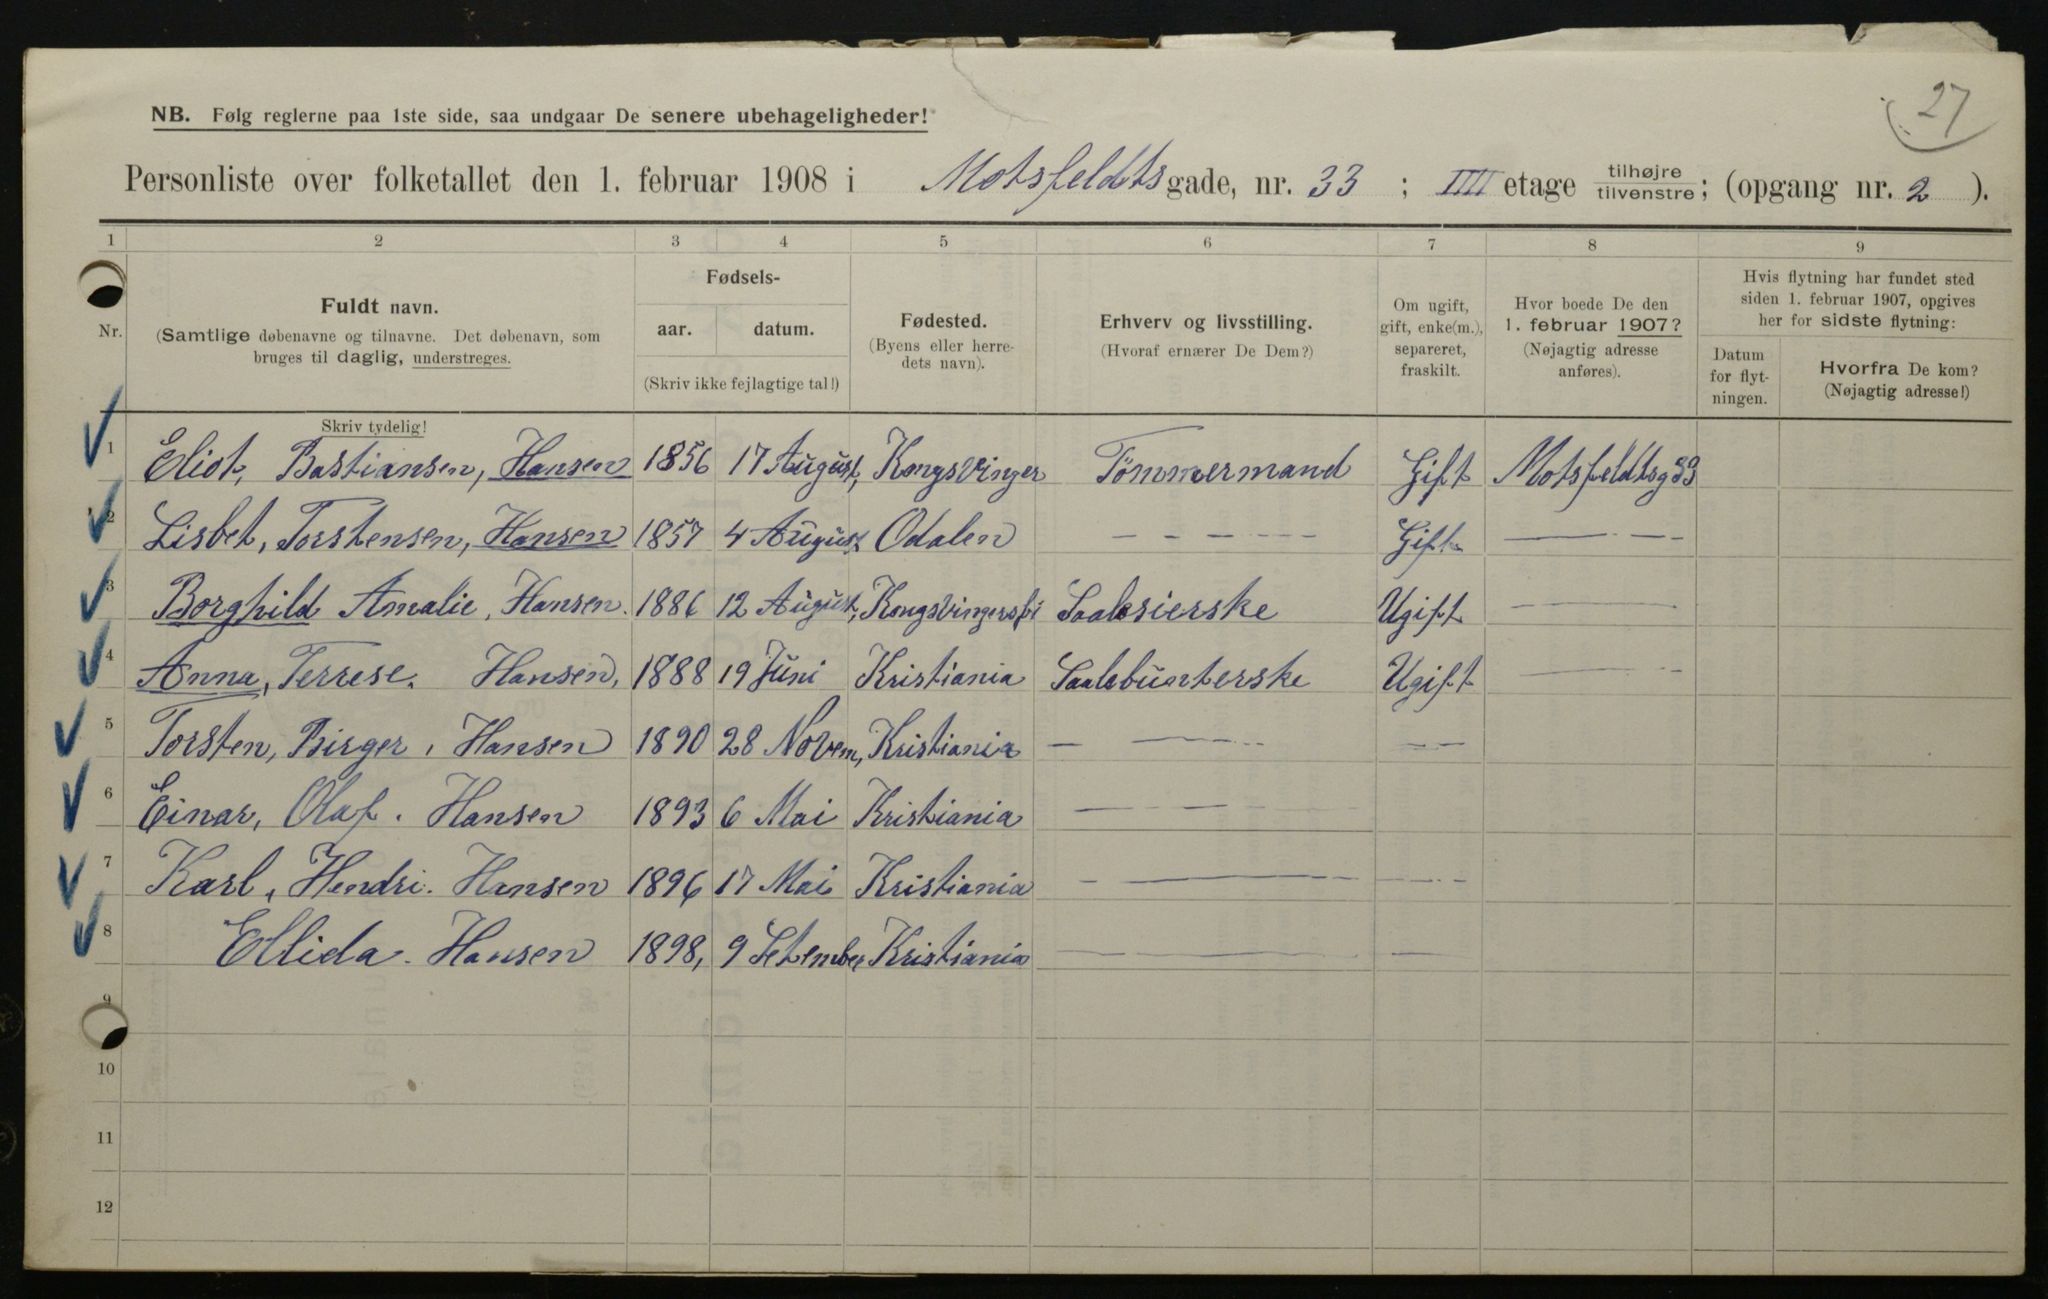 27
NB. Følg reglerne paa 1ste side, saa undgaar De senere ubehageligheder!
Personliste over folketallet den 1. februar 1908 i Motsfeldts gade, nr. 33 ; IIII etage tilhøjre tilvenstre; (opgang nr. 2 ).
1 2 3 4 5 6 7 8 9
Nr.
Fuldt navn.
(Samtlige døbenavne og tilnavne. Det døbenavn, som
bruges til daglig, understreges.
Skriv tydelig!
Fødsels-
aar. datum.
(Skriv ikke fejlagtige tal!)
Fødested.
(Byens eller herre-
dets navn).
Erhverv og livsstilling.
(Hvoraf ernærer De Dem?)
Om ugift,
gift, enke(m.),
separeret,
fraskilt.
Hvor boede De den
1. februar 1907?
(Nøjagtig adresse
anføres).
Hvis flytning har fundet sted
siden 1. februar 1907, opgives
her for sidste flytning:
Datum
for flyt-
ningen.
Hvorfra De kom?
(Nøjagtig adresse!)
1 Eliot, Bastiansen, Hansen 1856 17 August, Kongsvinger Tömmermand Gift Motsfeldtsg 33
2 Lisbet, Torstensen, Hansen 1857 4 August Odalen - - - - - - Gift - - -
3 Borghild Amalie, Hansen. 1886 12 August, Ugift - - -
4 Anna, Terrese. Hansen, 1888 19 Juni Kristiania Ugift - - -
5 Torsten, Birger, Hansen 1890 28 Novem, Kristiania - - - -
6 Einar, Olaf. Hansen 1893 6 Mai Kristiania - - - -
7 Karl, Hendri. Hansen 1896 17 Mai Kristiania - - - - - -
8 Ellida. Hansen 1898, 9 Setember Kristiania - - - - -
9
10
11
12